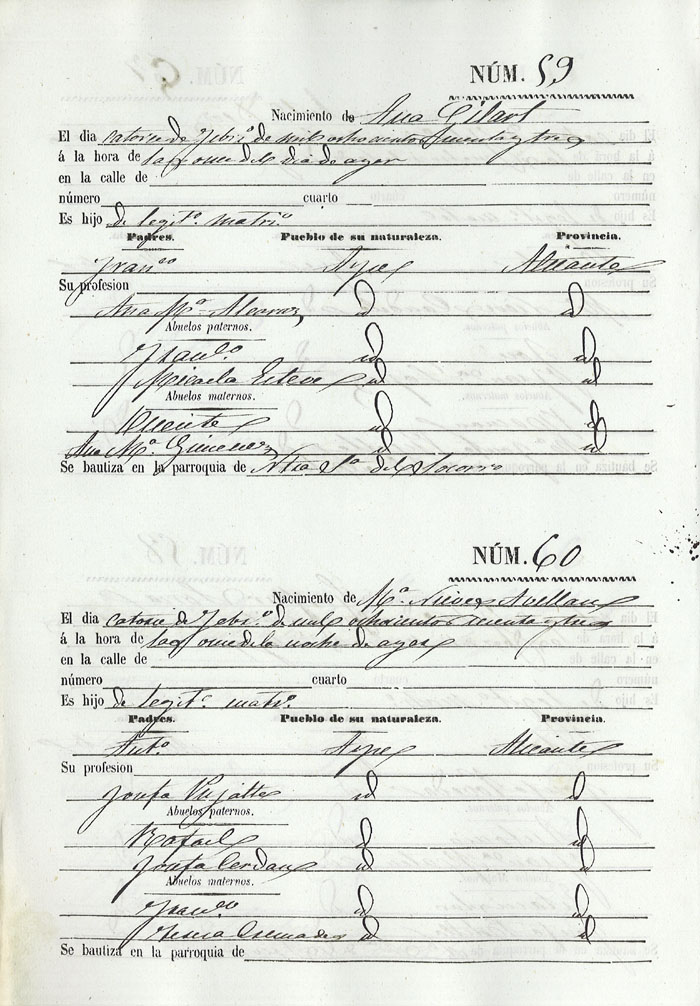 NÚM. 59
Nacimiento de Ana Gilart
El dia catorce de Febr.º de mil ochocientos y tres
á la hora de las once del dia de ayer
en la calle de
número cuarto
Es hijo de legit.º matri.º
Padres. Pueblo de su naturaleza. Provincia.
Fran.co Aspe Alicante
Su profesion
Ana M.ª Alcaraz id id
Abuelos paternos.
Fran.co id id
Micaela Esteve id id
Abuelos maternos.
Vicente id id
Ana M.ª Gimenez id id
Se bautiza en la parroquia de Ntra S.ª del Socorro
NÚM. 60
Nacimiento de M.ª Nieves Avellan
El dia catorce de Febr.º de mil ochocientos y tres
á la hora de las once de la noche de ayer
en la calle de
número cuarto
Es hijo de legit.º matr.º
Padres. Pueblo de su naturaleza. Provincia.
Ant.º Aspe Alicante
Su profesion
Josefa Pujalte id id
Abuelos paternos.
Rafael id id
Josefa Cerdan id id
Abuelos maternos.
Fran.co id id
Teresa Cremades id id
Se bautiza en la parroquia de